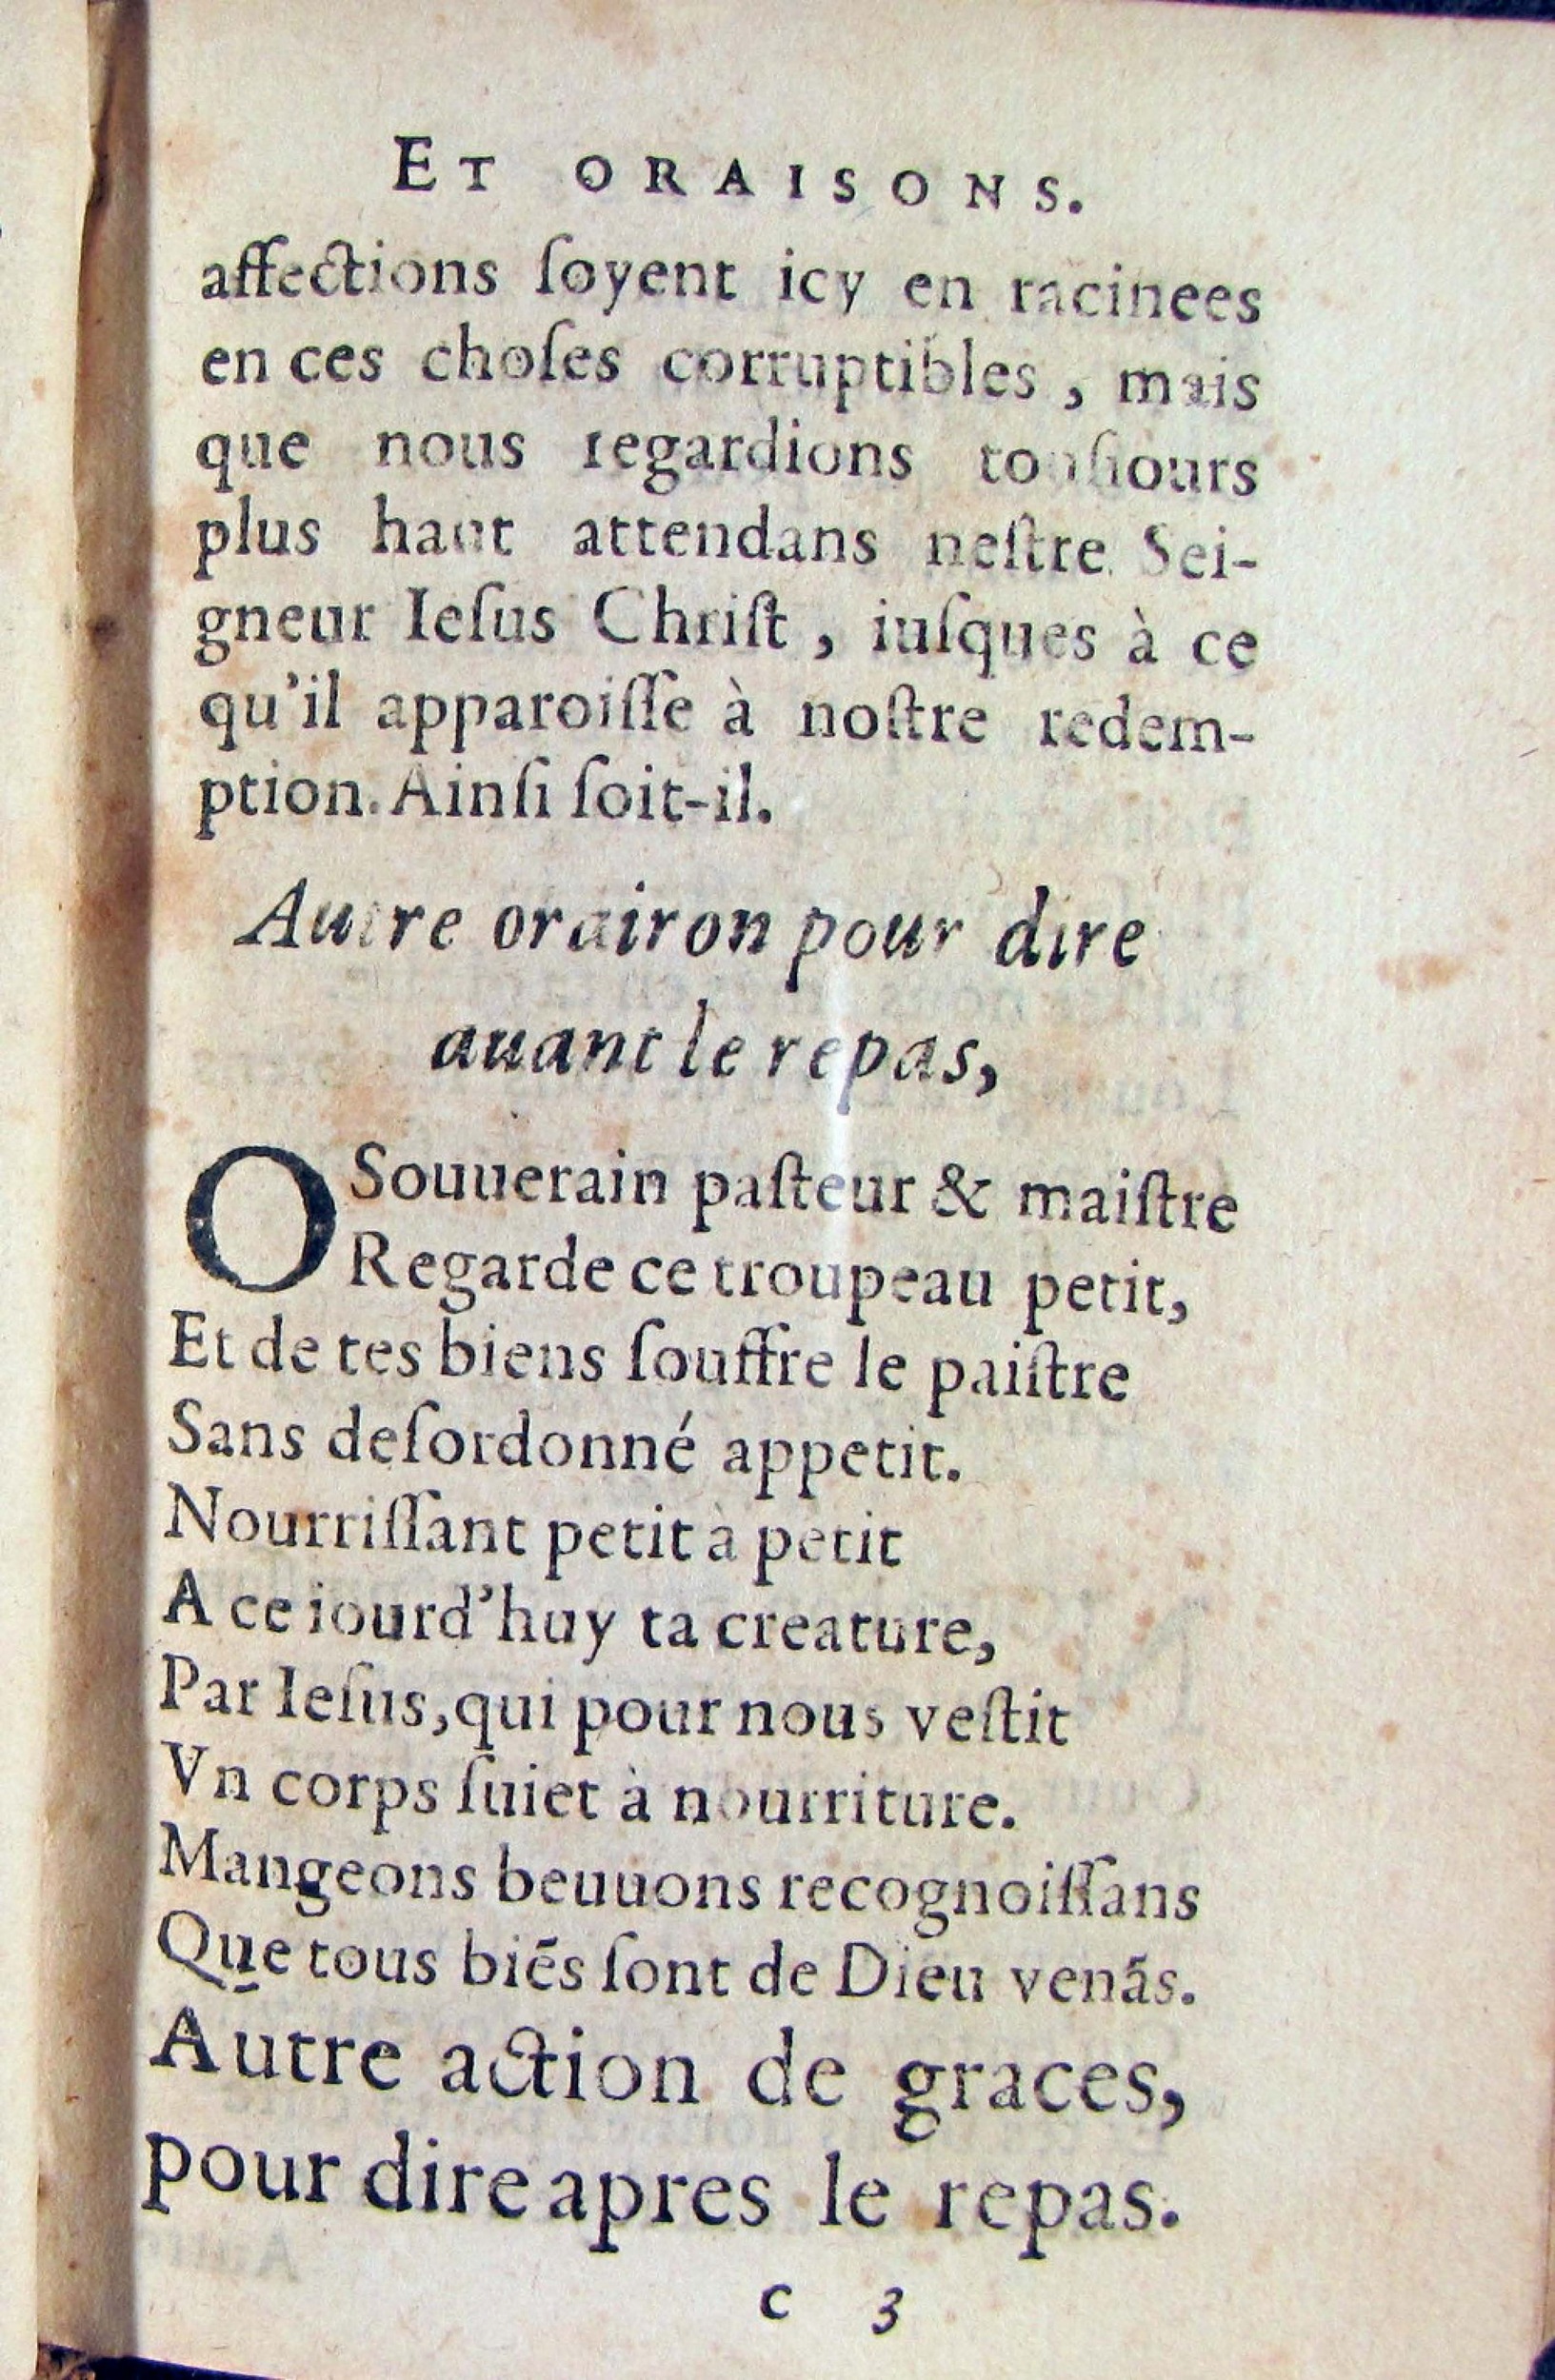 ET ORAISONS.
affections ſoyent icy en racinees
en ces choſes corruptibles , mais
que nous regardions touſiours
plus haut attendans neſtre Sei-
gneur Ieſus Chriſt , iuſques à ce
qu'il apparoiſſe à noſtre redem-
ption. Ainſi ſoit-il.
Autre orairon pour dire
auant le repas,
O Souuerain paſteur & maiſtre
Regarde ce troupeau petit,
Et de tes biens ſouffre le paiſtre
Sans deſordonné appetit.
Nourriſſant petit à petit
A ce iourd'huy ta creature,
Par Ieſus, qui pour nous veſtit
Vn corps ſuiet à nourriture.
Mangeons beuuons recognoiſſans
Que tous biẽs ſont de Dieu venãs.
Autre action de graces,
pour dire apres le repas.
c 3